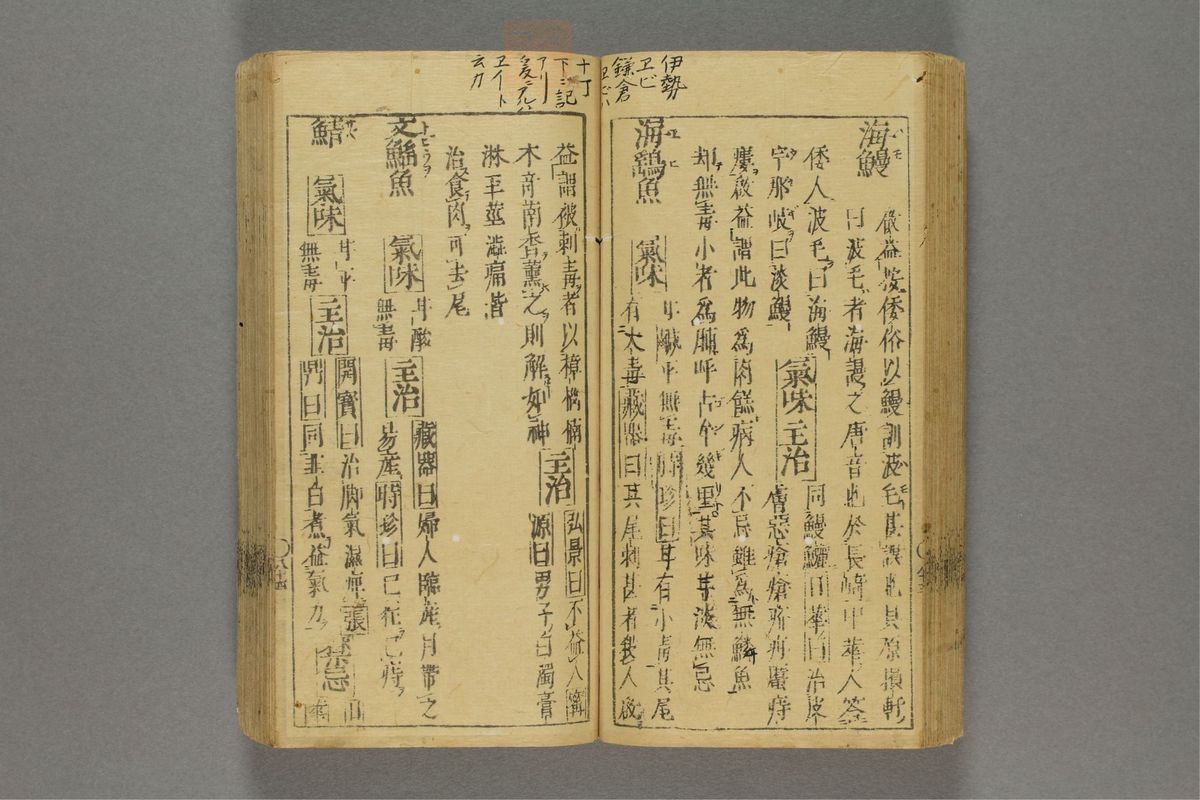 伊勢
ヱビ
鎌倉
ヱビハ
海鰻
ハモ
益按倭俗以鰻訓波毛甚誤也其原損軒
曰波毛者海鰻之唐音也於長崎中華人答
倭人波毛曰海鰻 氣味 主治 同鰻鱺 日華曰治皮
宇那岐曰淡鰻 膚惡瘡疥疳䘌痔
瘻啟益謂此物為肉饀病人不忌雖為無鱗魚
却無毒小者為脯呼占個幾里其味甘淡無忌
海鷂魚
ヱヒ
氣味 甘鹹平無毒 時珍曰 有小毒其尾
有大毒 藏器曰 其尾刺甚者
十丁
下ニ記
アリ
ヱイト
云カ
益謂被刺毒者以樟橘楠 弘景曰 不益人
木奇南香薰之則解如神 主治
淋玉莖澁痛皆 源曰 男子白濁膏
治食肉可去尾
文鰩魚
トヒウヲ
氣味 甘酸
無毒
主治 藏器曰 婦人臨産月帶之
易産 時珍曰 已狂已痔
鯖
氣味 甘平
無毒
主治 開寶曰 治脚氣濕痺
同韭白煮益氣力 禁忌